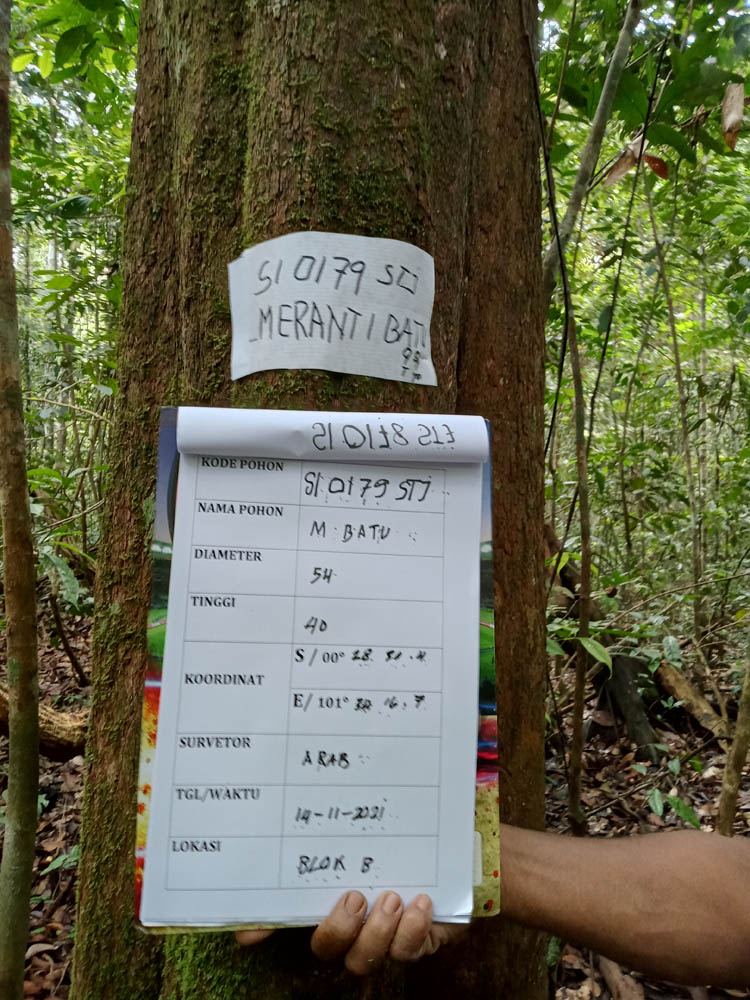 SI 0179 STJ
MERANTI BATU
98
SI 0178 STJ
KODE POHON SI 0179 STJ
NAMA POHON M BATU
DIAMETER 54
TINGGI 40
KOORDINAT
S / 00°
E / 101°
SURVETOR ARAB
TGL/WAKTU 14-11-2021
LOKASI BLOK B